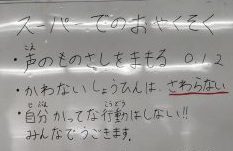 スーパーでのおやくそく
・声のものさしをまもる 0.1.2
・かわないしょうひんは、さわらない
・自分かってな行動はしない!!
みんなでうごきます。